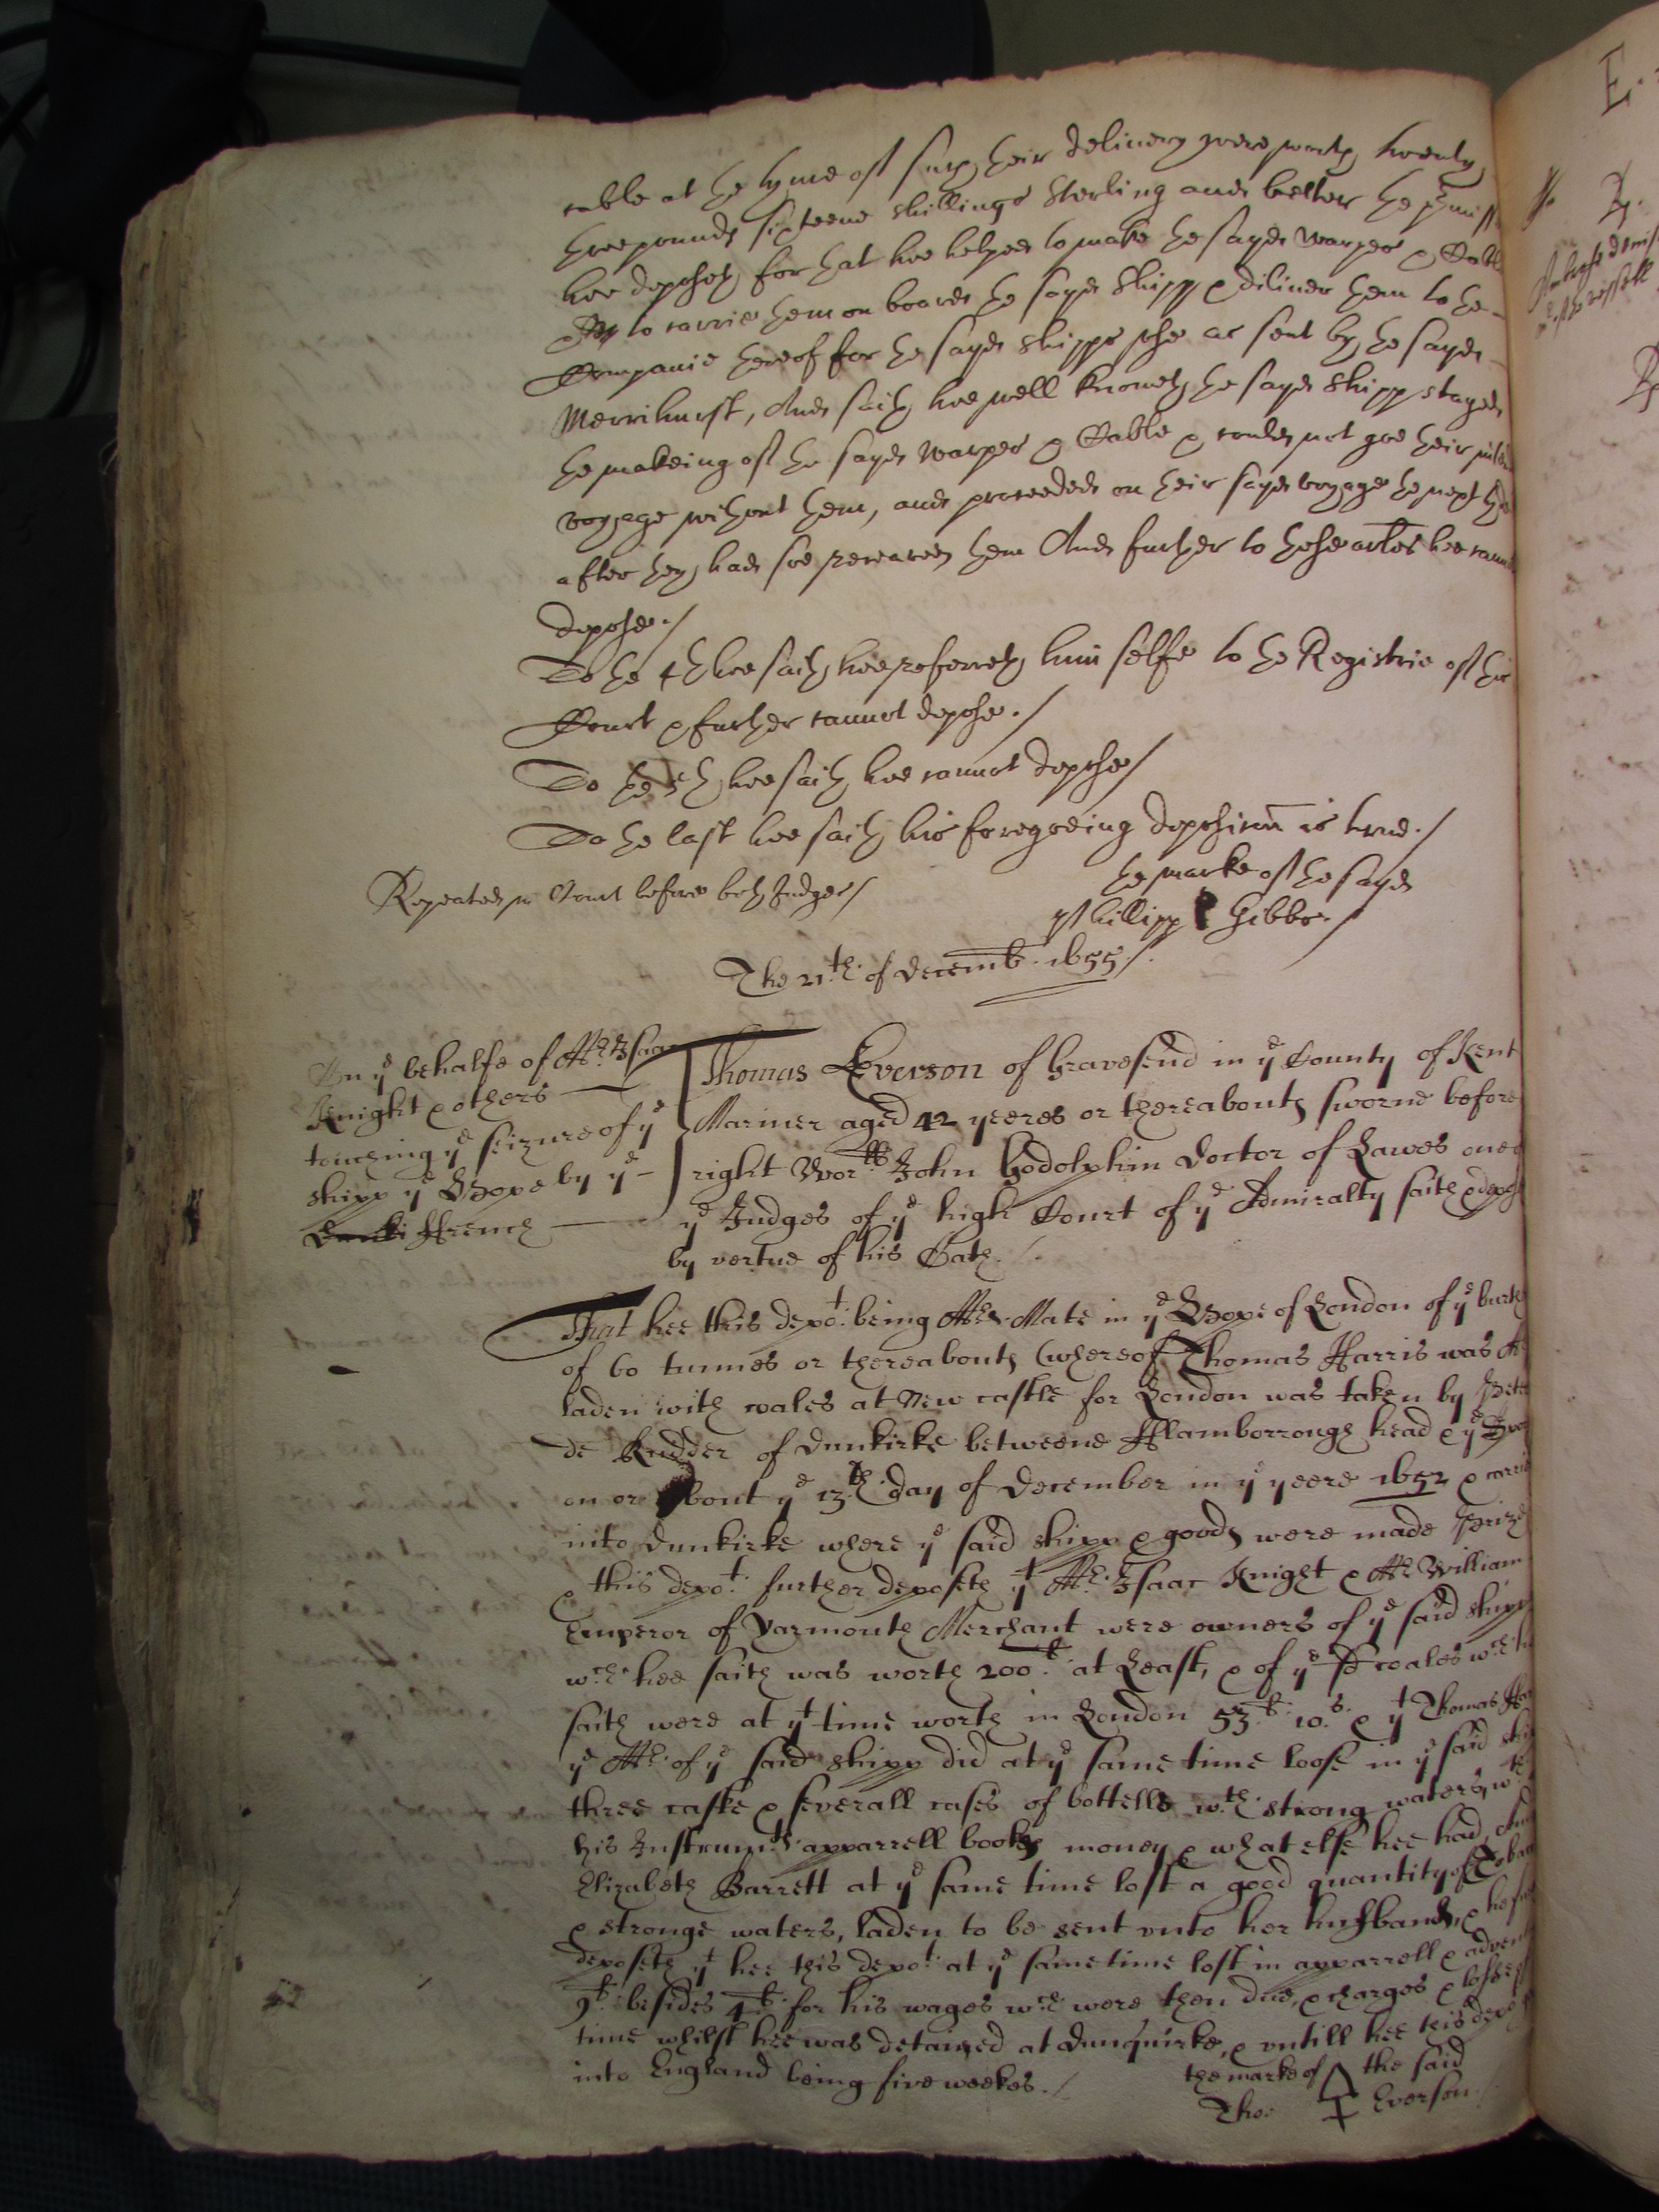 cable at the tyme of such their delivery were worth twenty
three pounds sixteene shillings sterling and better the premisses
hee deposeth for that hee helped to make the sayd warpes & Cable
to carrie them on board the sayd shipp & deliver them to the
Companie thereof for the sayd shipps use as sent by the sayd
Merrihurst, And saith hee well knoweth the sayd shipp stayed
the makeing of the sayd warpes & Cable & could not goe their
voyage without them, and proceeded on their sayd voyage the next tyde
after they had soe received them And further to these articles hee cannot
depose./
To the 4th hee saith hee referreth him selfe to the Registrie of this
Court & further cannot depose./
To the 5th hee saith hee cannot depose/
To the last hee saith his foregoeing deposicon is true./
Repeated in Court before both Judges/
the marke of the sayd
Phillipp Gibbs./
The 21th. of Decemb. 1655./.
On ye behalfe of Mr. Isaac
Knight & others
touching ye seizure of ye
shipp ye Hope by ye
Dunki ffrench
Thomas Everson of Gravesend in ye County of Kent
Mariner aged 42 yeeres or thereabouts sworne before
right Worll John Godolphin Doctor of Lawes one of
ye Judges of ye high Court of ye Admiralty saith & depos
by vertue of his Oath./.
That hee this depot. being Mrs Mate in ye Hope of London of ye burth
of 60 tunnes or thereabouts (whereof Thomas Harris was Mr
laden with coales at New castle for London was taken by Pete
de Rudder of Dunkirke betweene fflamborrough head & ye
on or about ye 13th. day of December in ye yeere 1652 & carri
into Dunkirke where ye said shipp & goods were made Prize
& this depot. further deposeth yt Mr. Isaac Knight & Mr William
Emperor of Yarmouth Merchant were owners of ye said shipp
wch. hee saith was worth 200li. at Least, & of ye sd coales wch h
saith were at yt time worth in London 53li. 10s. & yt Thomas Har
ye Mr. of ye said shipp did at ye same time loose in ye said shi
three caske & severall cases of bottells wth. strong waters, wth
his Instrumts. apparrell books money & what else hee had, And
Elizabeth Barrett at ye same time lost a good quantity of Tobac
& stronge waters, laden to be sent unto her husband, & he fur
deposeth yt hee this depot. at ye same time lost in apparrell & adven
9li. besides 4li. for his wages wch were then due, & charges & losse of
time whilst hee was detained at Dunquirke, & untill hee this depot
into England being five weekes./
the marke of the said
Tho: Everson